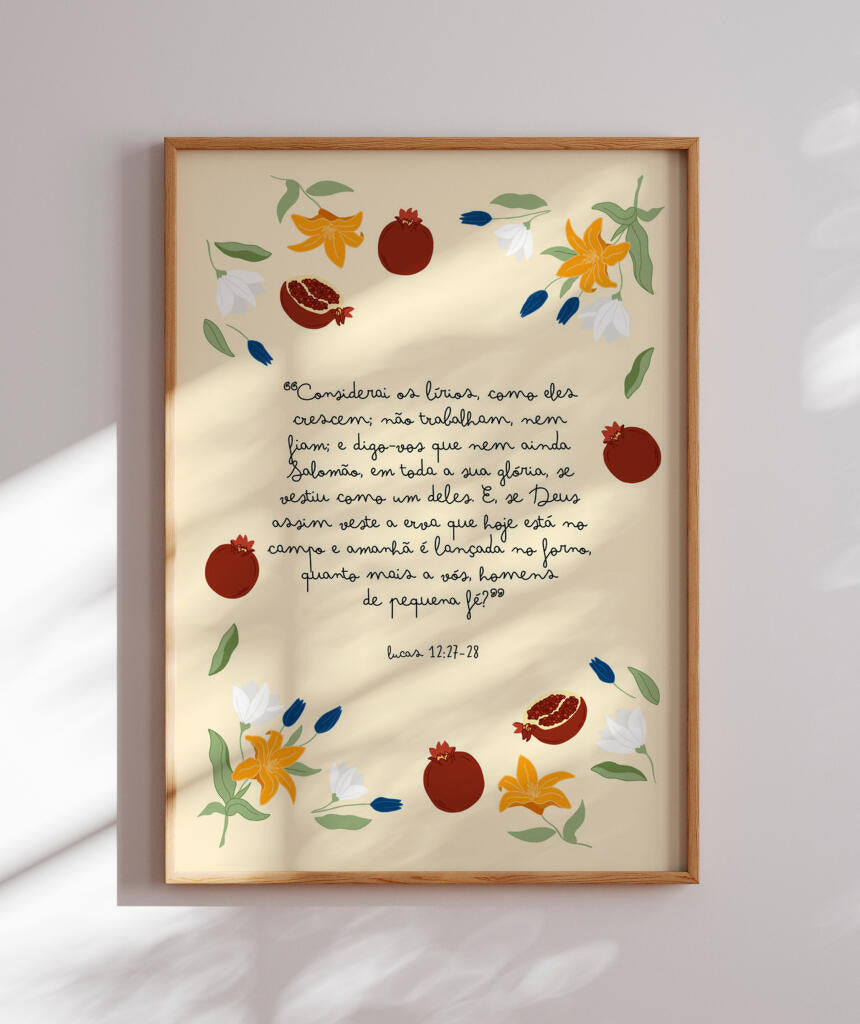 “Considerai os lírios, como eles
crescem; não trabalham, nem
fiam; e digo-vos que nem ainda
Salomão, em toda a sua glória, se
vestiu como um deles. E, se Deus
assim veste a erva que hoje está no
campo e amanhã é lançada no forno,
quanto mais a vós, homens
de pequena fé?”
lucas 12:27-28